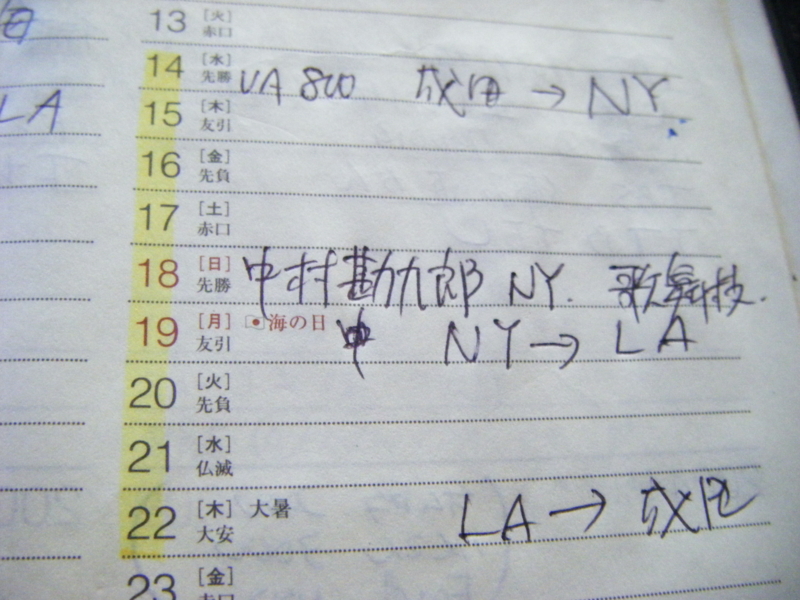 13 [火] 赤口
14 [水] 先勝 UA 800 成田 → NY
LA
15 [木] 友引
16 [金] 先負
17 [土] 赤口
18 [日] 先勝 中村勘九郎 NY. 歌舞伎.
19 [月] 友引 海の日 中 NY → LA
20 [火] 先負
21 [水] 仏滅
22 [木] 大安 大暑 LA → 成田
23 [金]